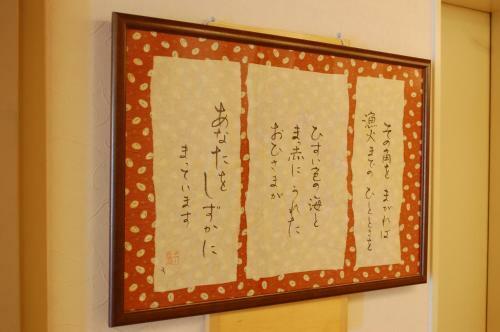 その角を まがれば
漁火までの ひとときを
ひすい色の海と
まっ赤にうれた
おひさまが
あなたを しずかに
まっています